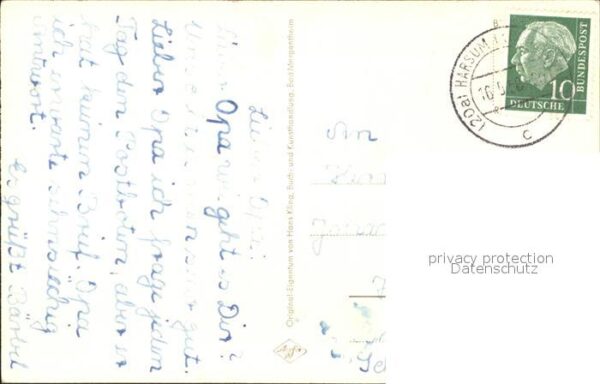 Lieber Opa!
Lieber Opa wie geht es Dir?
Uns geht es immer sehr gut.
Lieber Opa ich frage jeden
Tag den Postboten, aber er
hat keinen Brief. Opa
ich erwarte sehnsüchtig
Antwort.
Es grüßt Bärbel
Original-Eigentum von Hans Kling, Buch- und Kunsthandlung, Bad Mergentheim
An
(20a) HARSUM
16.5.
c
10
DEUTSCHE
BUNDESPOST
privacy protection
Datenschutz